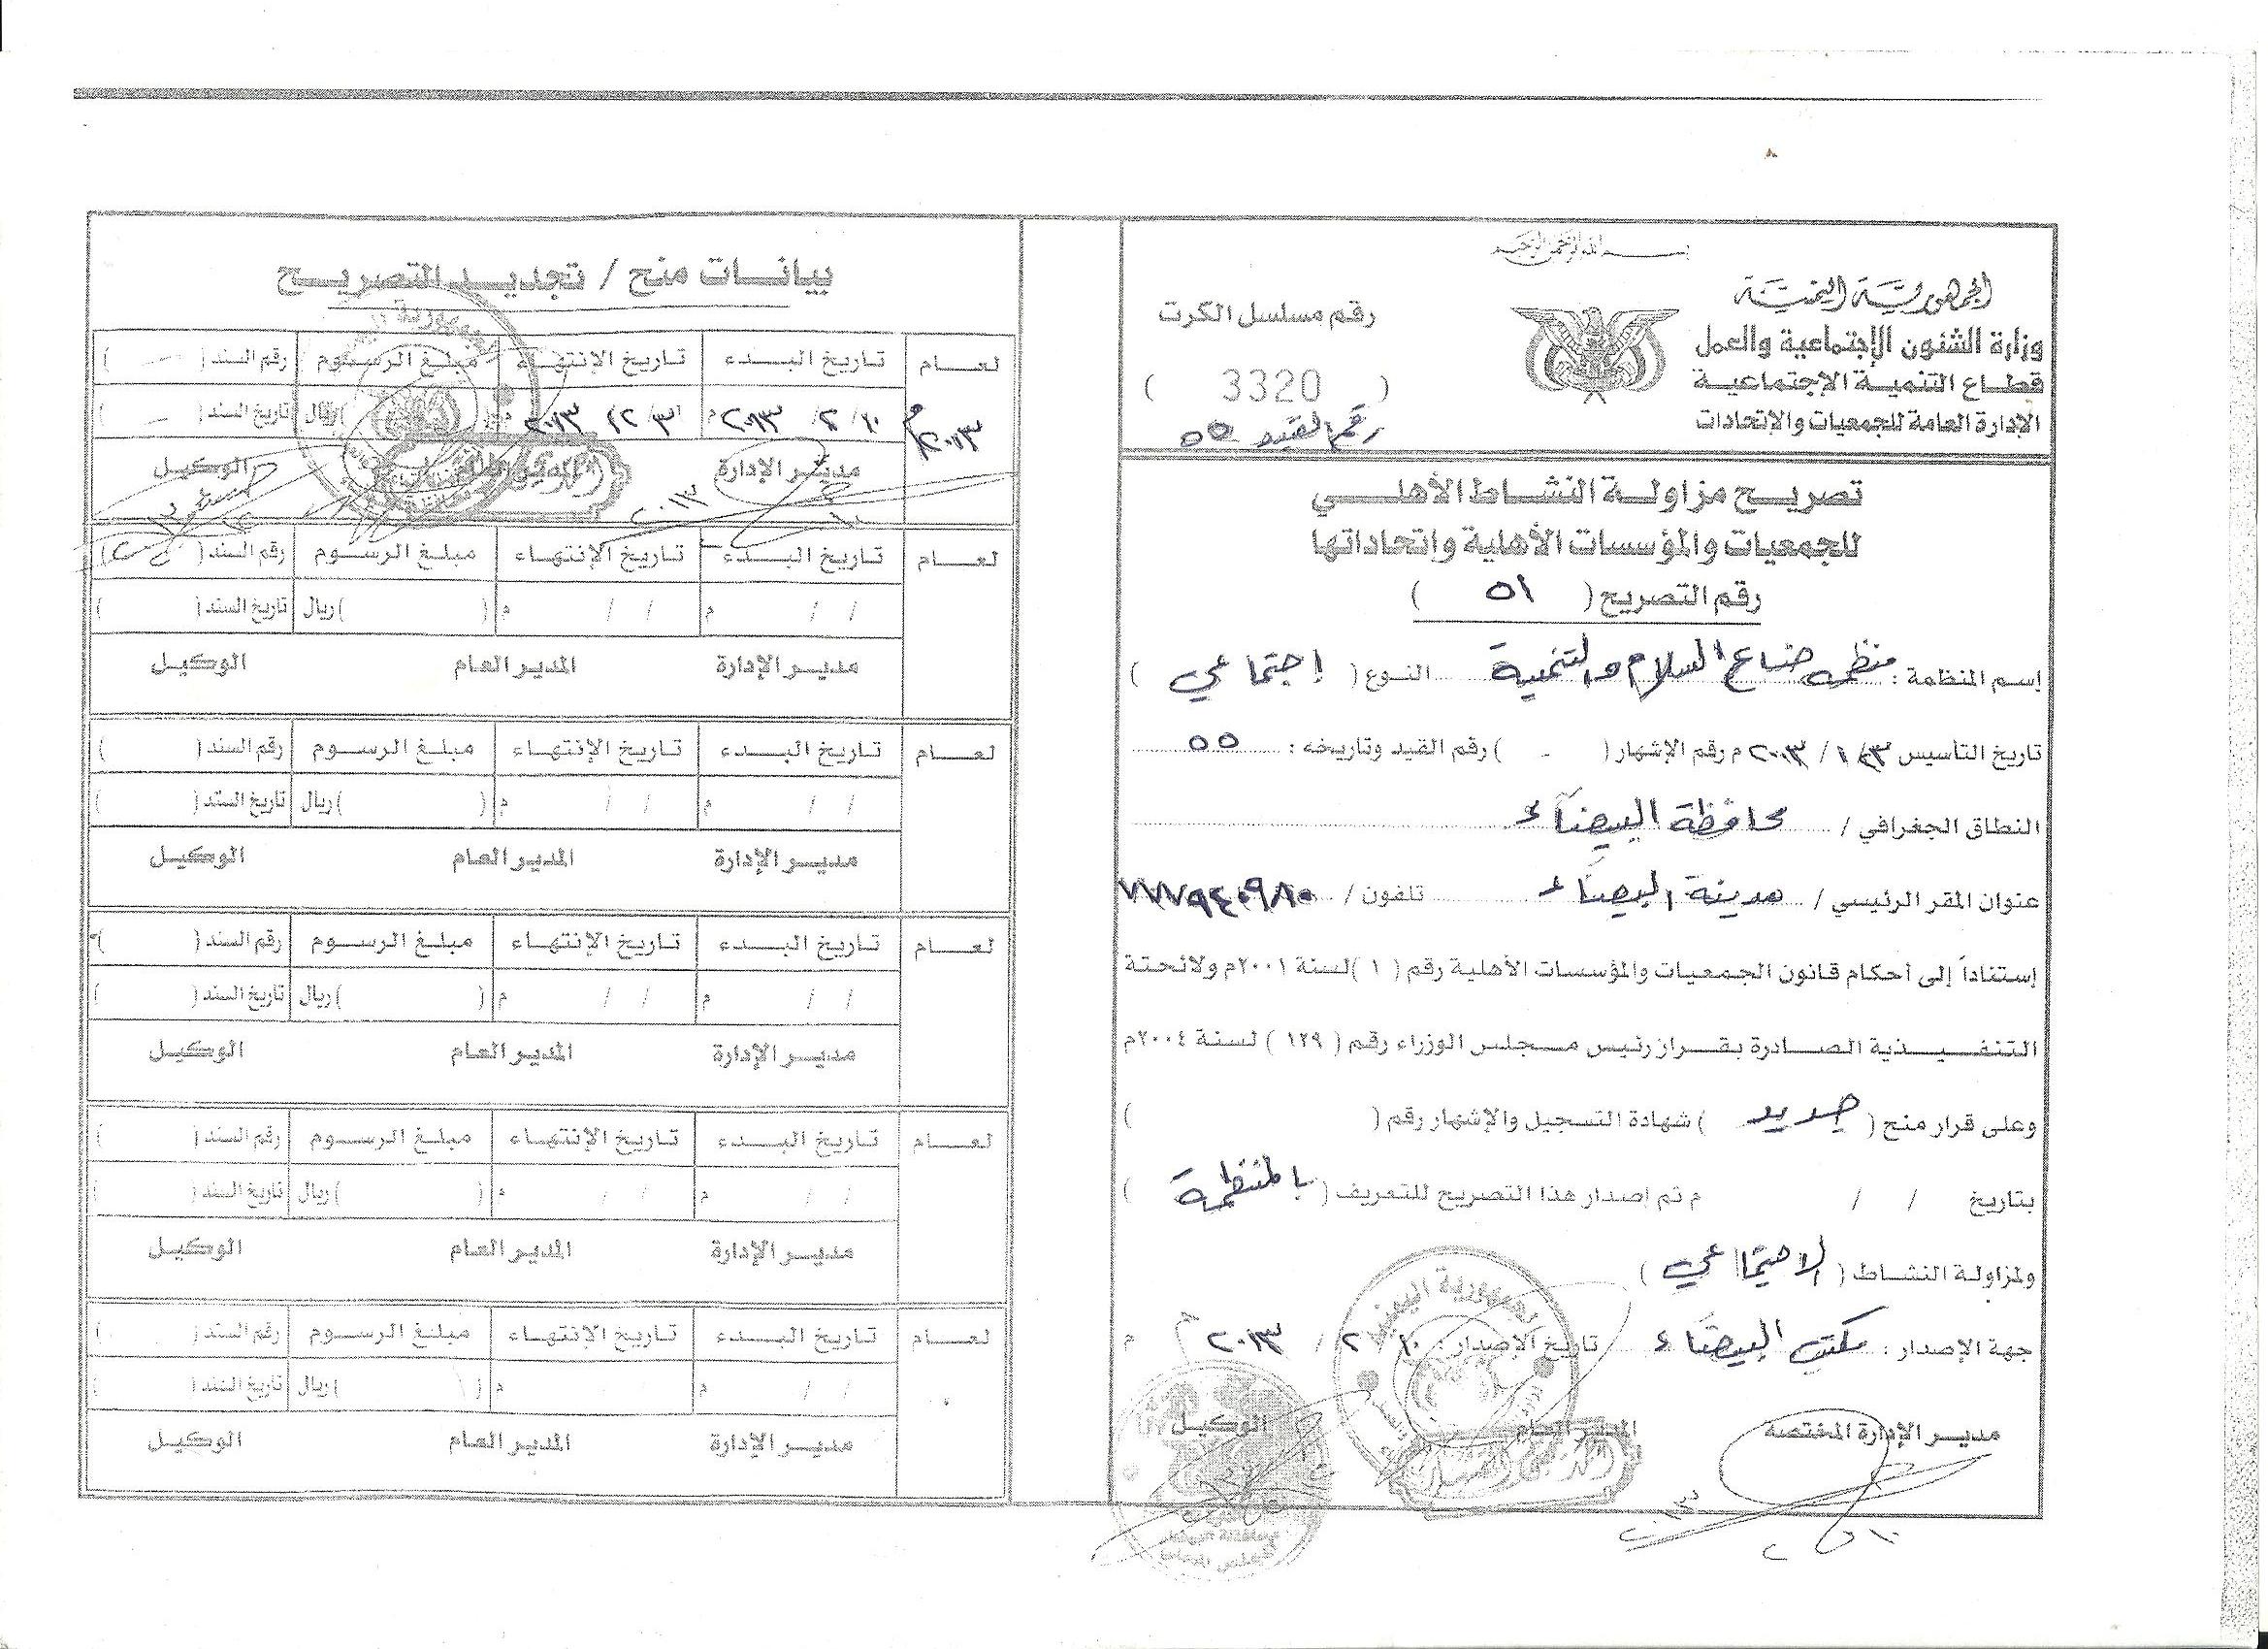 بسم الله الرحمن الرحيم
الجمهورية اليمنية
وزارة الشئون الإجتماعية والعمل
قطاع التنمية الإجتماعية
الإدارة العامة للجمعيات والإتحادات
رقم مسلسل الكرت
( 3320 )
رقم القيد ٥٥
تصريح مزاولة النشاط الأهلي
للجمعيات والمؤسسات الأهلية واتحاداتها
رقم التصريح ( ٥١ )
إسم المنظمة : منظمة صناع السلام والتنمية النوع ( إجتماعي )
تاريخ التأسيس / ١ / ٢٠١٣م رقم الإشهار ( - ) رقم القيد وتاريخه : ٥٥
النطاق الجغرافي / محافظة البيضاء
عنوان المقر الرئيسي / مدينة البيضاء تلفون /
إستناداً إلى أحكام قانون الجمعيات والمؤسسات الأهلية رقم ( ١ ) لسنة ٢٠٠١م ولائحتة
التنفيذية الصادرة بقرار رئيس مجلس الوزراء رقم ( ١٢٩ ) لسنة ٢٠٠٤م
وعلى قرار منح ( جديد ) شهادة التسجيل والإشهار رقم ( )
بتاريخ / / م تم إصدار هذا التصريح للتعريف ( بالمنظمة )
ولمزاولة النشاط ( الاجتماعي )
جهة الإصدار : مكتب البيضاء تاريخ الإصدار : ١٠ / ٢ / ٢٠١٣ م
مدير الإدارة المختصة المدير العام الوكيل
بيانات منح / تجديد التصريح
لعام تاريخ البدء تاريخ الإنتهاء مبلغ الرسوم رقم السند ( )
٢٠١٣م ١٠/ ٢/ ٢٠١٣م ٣١/ ١٢/ ٢٠١٣م ( ) ريال تاريخ السند ( )
مدير الإدارة المدير العام الوكيل
لعام تاريخ البدء تاريخ الإنتهاء مبلغ الرسوم رقم السند ( )
/ / م / / م ( ) ريال تاريخ السند ( )
مدير الإدارة المدير العام الوكيل
لعام تاريخ البدء تاريخ الإنتهاء مبلغ الرسوم رقم السند ( )
/ / م / / م ( ) ريال تاريخ السند ( )
مدير الإدارة المدير العام الوكيل
لعام تاريخ البدء تاريخ الإنتهاء مبلغ الرسوم رقم السند ( )
/ / م / / م ( ) ريال تاريخ السند ( )
مدير الإدارة المدير العام الوكيل
لعام تاريخ البدء تاريخ الإنتهاء مبلغ الرسوم رقم السند ( )
/ / م / / م ( ) ريال تاريخ السند ( )
مدير الإدارة المدير العام الوكيل
لعام تاريخ البدء تاريخ الإنتهاء مبلغ الرسوم رقم السند ( )
/ / م م ( ) ريال تاريخ السند ( )
مدير الإدارة المدير العام الوكيل